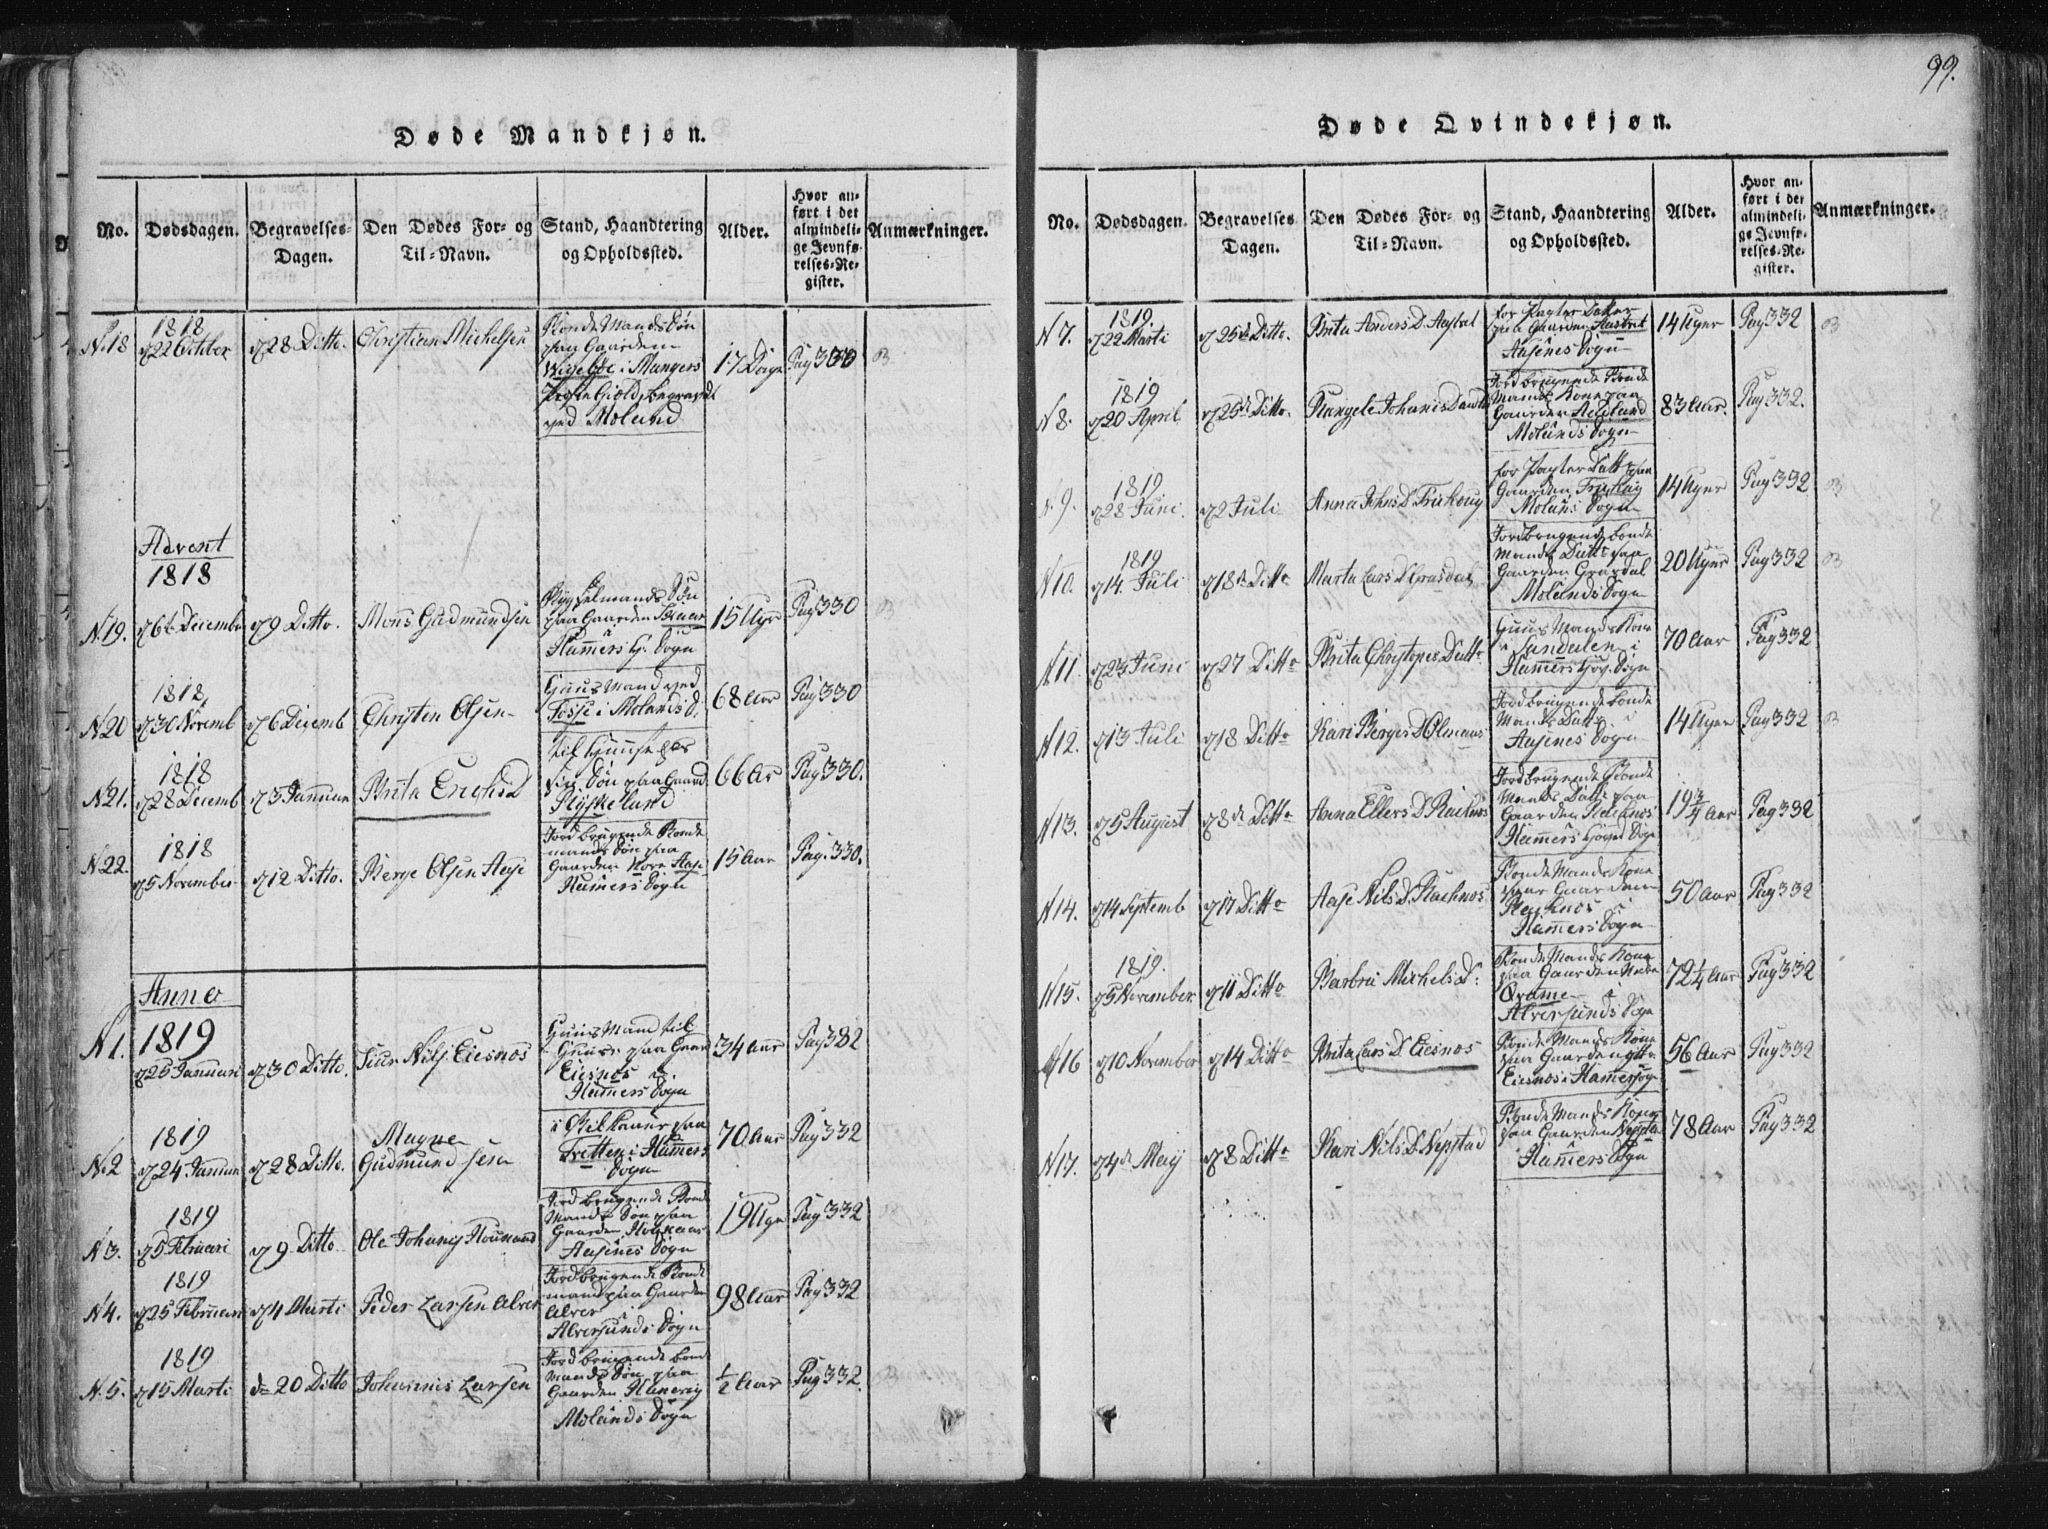 99.
Døde Mandkjøn.
No.
Dødsdagen.
Begravelses-
Dagen.
Den Dødes For- og
Til-Navn.
Stand, Haandtering
og Opholdssted.
Alder.
Hvor an-
ført i det
almindeli-
ge Jevnfø-
relses-Re-
gister.
Anmærkninger.
N.18
1818
d 22 October
d 28 Ditto.
Christian Michelsen
Bonde Mands Søn
paa Gaarden
i Mangers
begravet
ved Molund
17 Dage
Pag 330
Advent
1818
N.19.
d 6te Decembr
d 9 Ditto.
Mons Gudmundsen
Søn
paa Gaarden
Hamers Sogn
15 Uger
Pag 330
N.20
1818
d 30 Novemb
d 6 Decemb
Christen Olsen
Huus Mand ved
Fosse i Molands
68 Aar
Pag 330
N.21.
1818
d 28 Decemb
d 3 Januar
Brita Erichs D
til Huuse hos
sin Søn paa Gaard
66 Ar
Pag 330.
N.22.
1818
d 5 November
d 12 Ditto.
Berge Olsen Aase
Jordbrugende Bonde
mands Søn paa
Gaarden Nore Aase
Hamers Sogn
15 Aar
Pag. 330.
Anno
1819
N 1.
d 25 Januari
d 30 Ditto.
Siur Nilsen Eiesnos
Huus Mand til
Huuse paa Gaard
Eiesnos i
Hamers Sogn
34 Aar
Pag 332
N.2
1819
d 24 Januar
d 28 Ditto.
Magne
Gudmundsen
paa
i Hamers
Sogn
70 Aar
Pag 332
N 3.
1819
d 5 Februari
d 9 Ditto.
Ole Johannes
Jordbrugende Bonde
Mands Søn paa
Gaarden
Aasenes Sogn
19 Uger
Pag 332
N 4.
1819
d 25 Februari
d 4 Marti
Peder Larsen Alver
Jordbrugende Bonde
mand paa Gaarden
Alver i
Alversunds Sogn
98 Aar
Pag 332
N. 5.
1819
d 15 Marti
d= 20 Ditto
Johannis Larsen
Jordbrugende bonde
Mands Søn paa
Gaarden
Molands Sogn
½ Aar
Pag 332.
Døde Qvindekjøn.
No.
Dødsdagen.
Begravelses
Dagen.
Den Dødes For- og
Til-Navn.
Stand, Haandtering
og Opholdssted.
Alder.
Hvor an-
ført i det
almindeli-
ge Jevnfø-
relses-Re-
gister.
Anmærkninger.
N 7.
1819
d 22 Marti
d 25de Ditto.
Brita Anders D. Austret
for Pagter Datter
paa Gaarden Austret
Aasenes Sogn
14 Uger
Pag 332
N 8.
1819
d 20 April
d 25de Ditto.
Johanis Datter
Jordbrugende Bonde
Mands Kone paa
Gaarden
Molunds Sogn
83 Aar.
Pag 332.
N. 9.
1819
d 28 Juni.
d 2 Juli
Anna Johns D
for Pagter Datt paa
Gaarden
Molans Sogn
14 Uger
Pag 332
N 10.
1819
d 14. Juli
d 18de Ditto
Marta Lars D Grasdal
Jordbrugende bonde
Mands Datt paa
Gaarden Grasdal
Molands Sogn
20 Uger
Pag 332
N 11
d 23 Juni
d 27 Ditto
Brita Christophes Datt
Huus Mands Kone
i
Hamers Sogn
70 Aar
Pag 332
N 12.
d 13 Juli
d 18 Ditto
Kari Berges D
Jordbrugende bonde
Mands Datt
Aasenes Sogn
14 Uger
Pag 332
N 13.
d 5 August
d 8de Ditto
Anna Ellers D Raknos
Jordbrugende Bonde
Mands Datt paa
Gaarden Raknos
Hamers Sogn
19 ¾ Aar
Pag 332
N 14.
d 14 Septemb
d 17 Ditto
Aase Nils D. Raknos
Bonde Mands Kone
paa Gaarden
Raknos i
Hamers Sogn
50 Aar
Pag 332
N 15.
1819.
d 5 November
d 11 Ditto
Barbra Michels D:
Bonde Mands Kone
paa Gaarden Nedre
Qvame i
Alversunds Sogn
72 ¼ Aar
Pag 332
N 16
d 10 November
d 14 Ditto
Brita Lars D Eiesnos
Bonde Mands Kone
paa Gaarden
Eiesnos i Hamersog
56 Aar
Pag 332
N 17.
d 4de Maij
d 8 Ditto
Kari Nils D. Nepstad
Bonde Mands Kone
paa Gaarden Nepstad
i Hamers Sogn
78 Aar
Pag 332